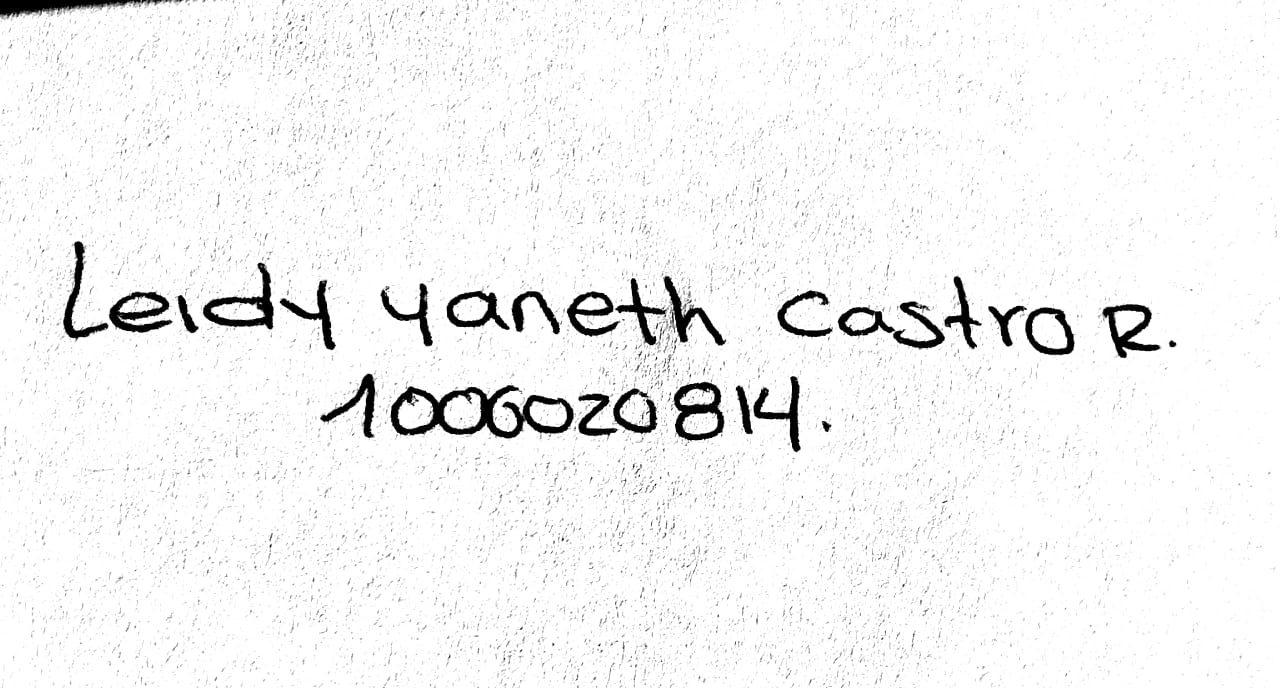 Leidy yaneth castro R.
1006020814.